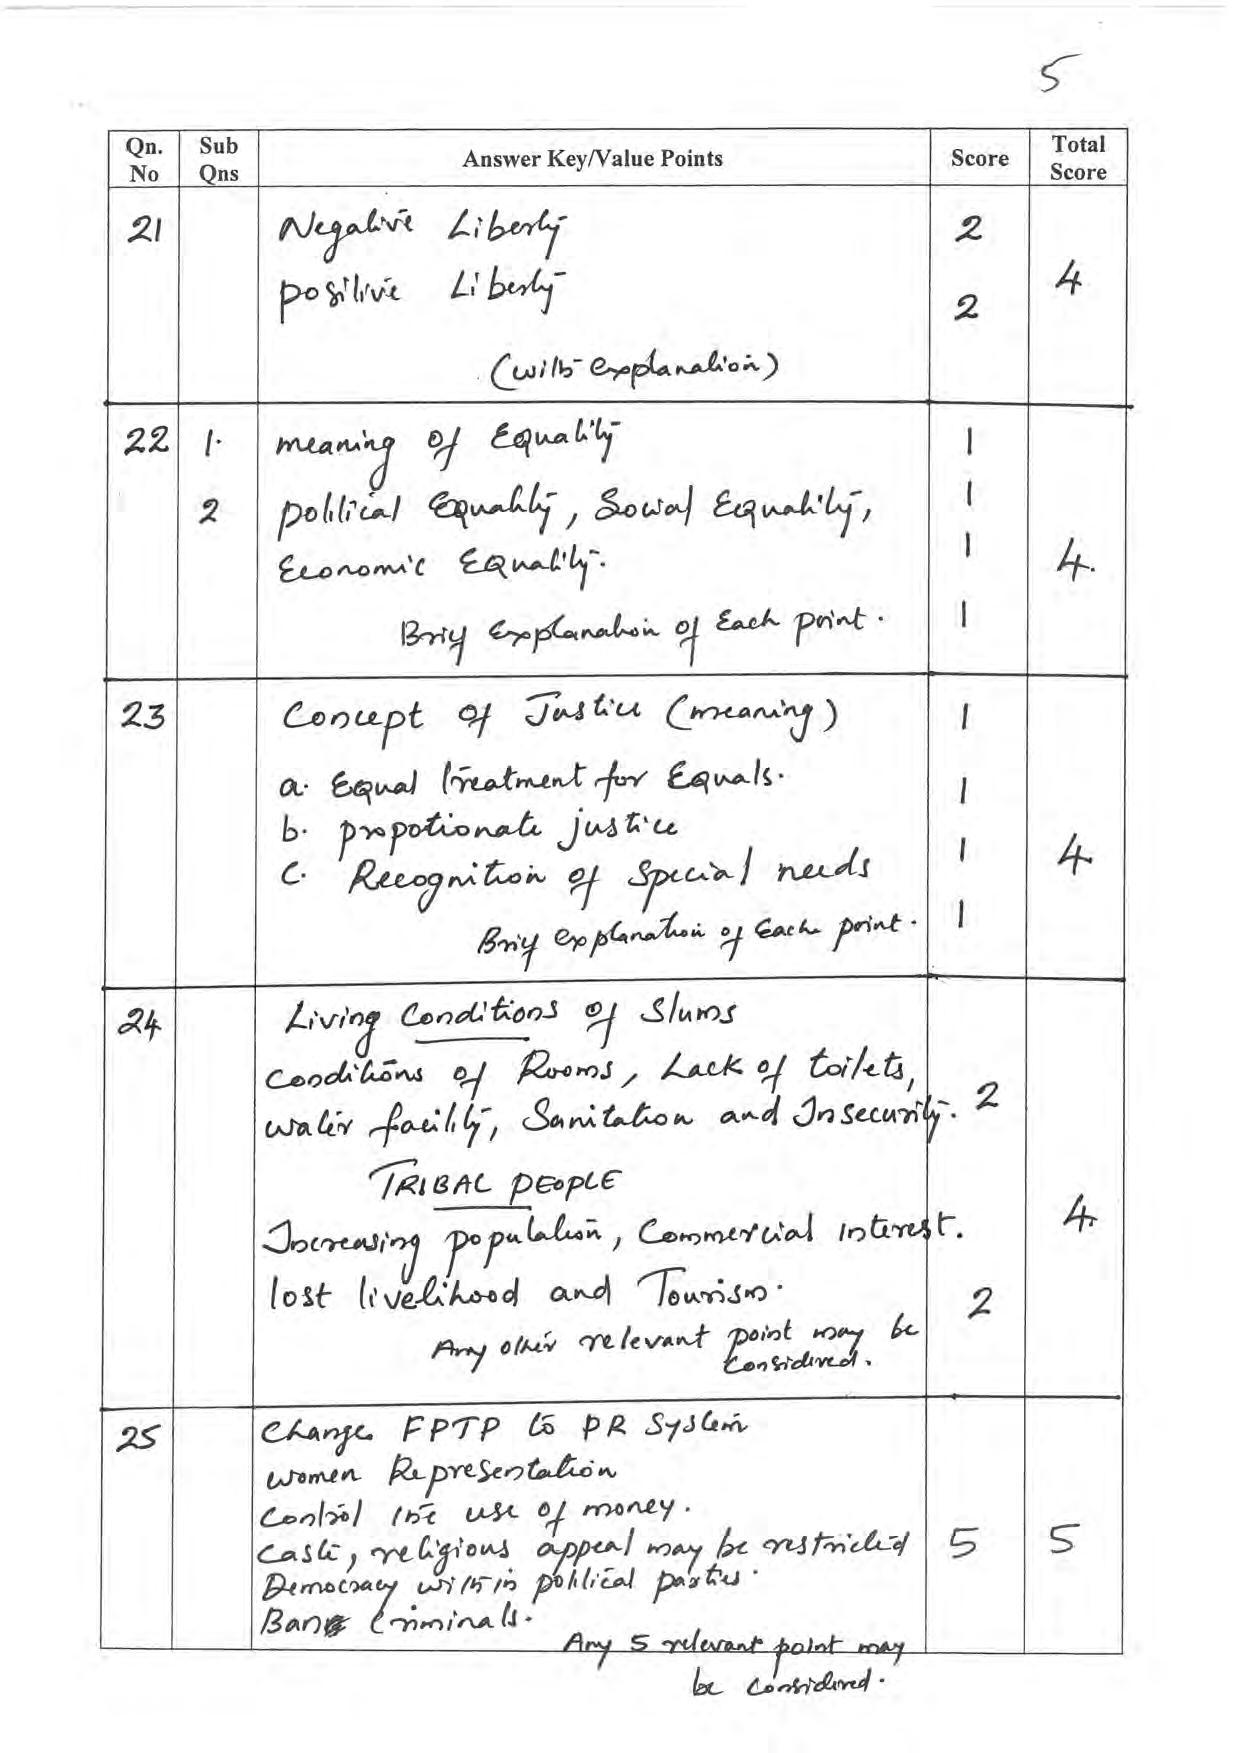 5
Qn. No Sub Qns Answer Key/Value Points Score Total Score
21 Negative Liberty 2
Positive Liberty 2 4
(with explanation)
22 1. meaning of Equality 1
2 political Equality, Social Equality, 1
Economic Equality. 1 4.
Brief Explanation of Each point. 1
23 Concept of Justice (meaning) 1
a. Equal treatment for Equals. 1
b. propotionate justice 1
c. Recognition of Special needs 4
Brief explanation of Each point. 1
24 Living Conditions of Slums
Conditions of Rooms, Lack of toilets,
water facility, Sanitation and Insecurity. 2
TRIBAL PEOPLE
Increasing population, Commercial interest. 4.
lost livelihood and Tourism. 2
Any other relevant point may be
considered.
25 Change FPTP to PR System
women Representation
Control the use of money.
Caste, religious appeal may be restricted 5 5
Democracy within political parties.
Ban Criminals.
Any 5 relevant point may
be considered.